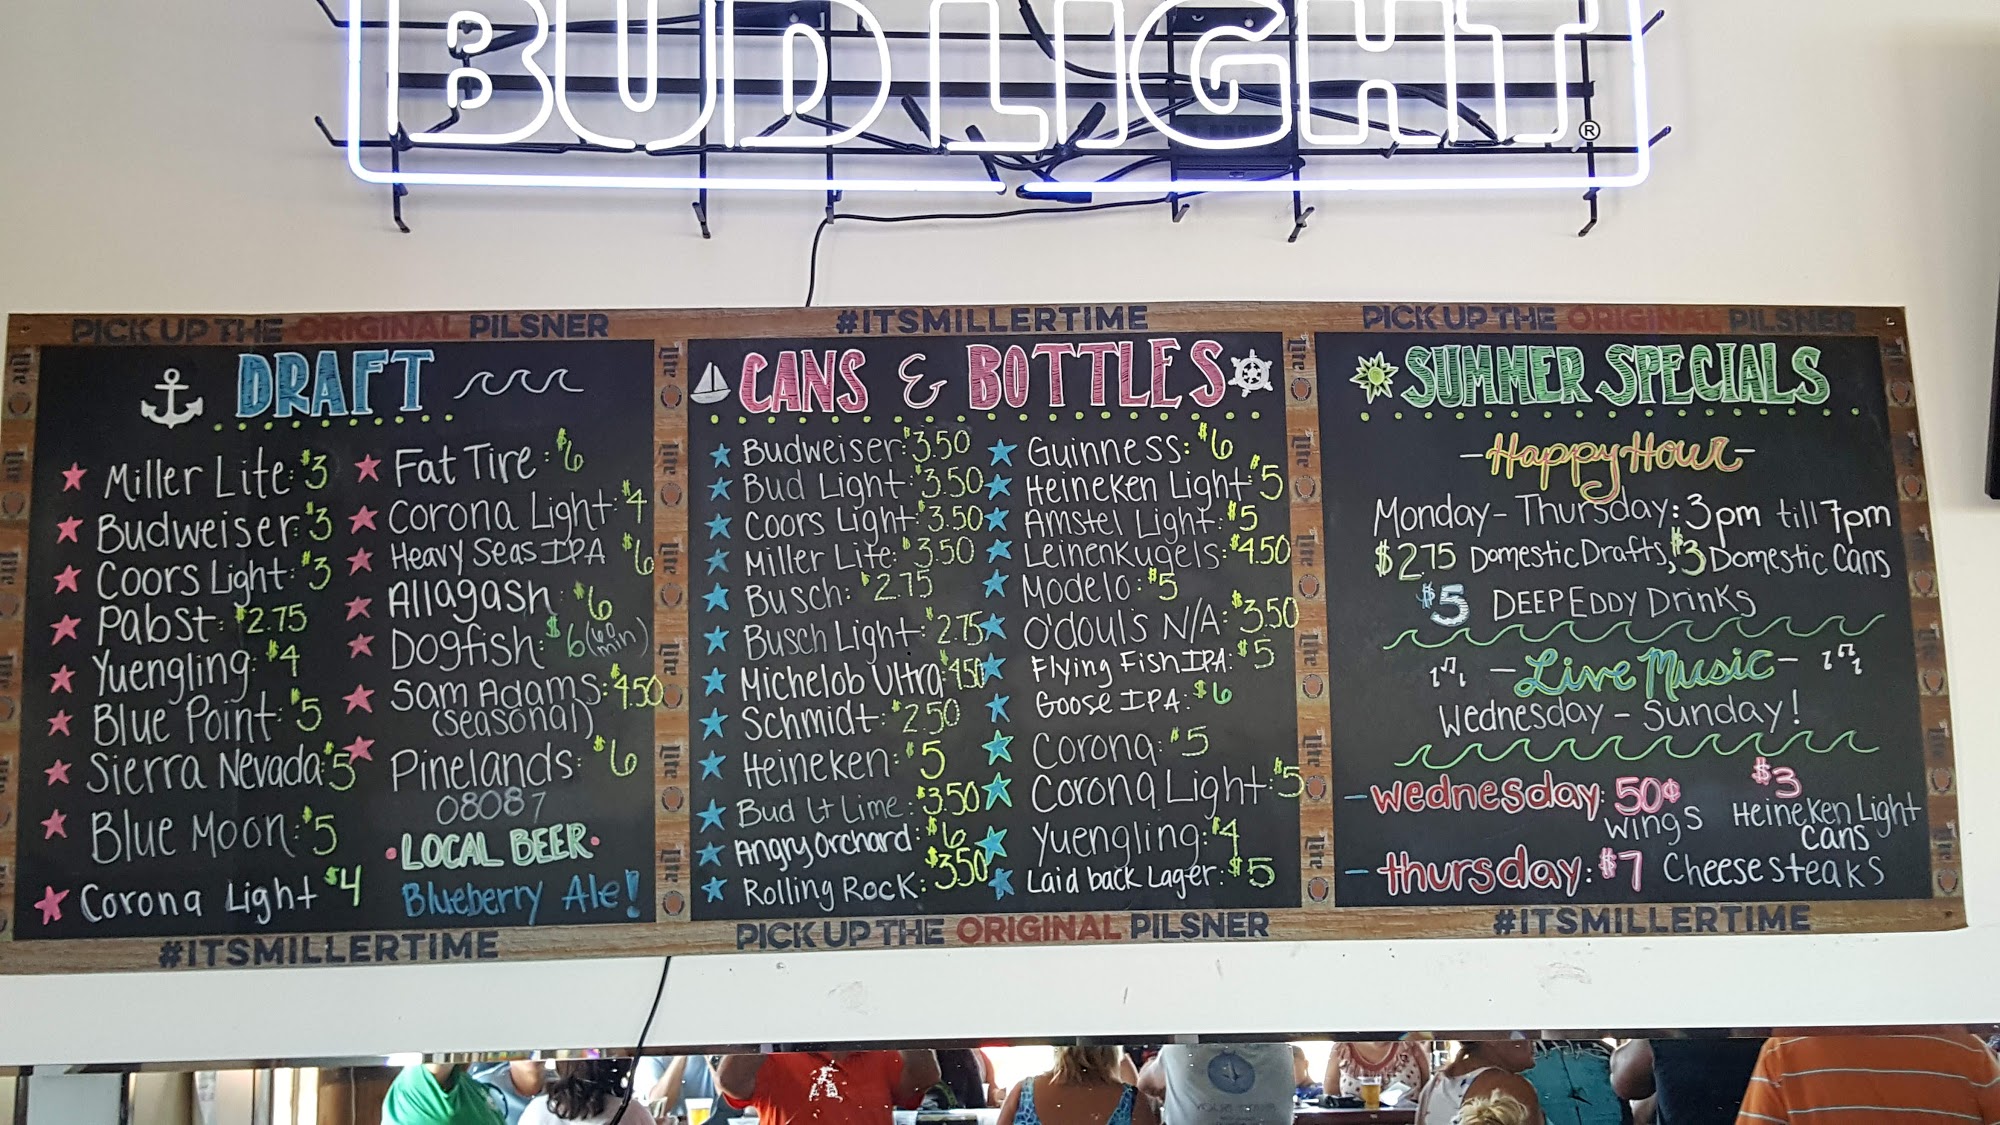 BUD LIGHT ®
PICK UP THE ORIGINAL PILSNER
#ITSMILLERTIME
PICK UP THE ORIGINAL PILSNER
DRAFT
Miller Lite: $3
Budweiser: $3
Coors Light: $3
Pabst: $2.75
Yuengling: $4
Blue Point: $5
Sierra Nevada: $5
Blue Moon: $5
Corona Light $4
Fat Tire: $6
Corona Light: $4
Heavy Seas IPA $6
Allagash: $6
Dogfish: $6 (60 min)
Sam Adams: $4.50
(seasonal)
Pinelands: $6
08087
LOCAL BEER
Blueberry Ale!
CANS & BOTTLES
Budweiser: $3.50
Bud Light: $3.50
Coors Light: $3.50
Miller Lite: $3.50
Busch: $2.75
Busch Light: $2.75
Michelob Ultra $4.50
Schmidt: $2.50
Heineken: $5
Bud Lt Lime: $3.50
Angry Orchard: $6
Rolling Rock: $3.50
Guinness: $6
Heineken Light: $5
Amstel Light: $5
Leinenkugels: $4.50
Modelo: $5
O'douls N/A: $3.50
Flying Fish IPA: $5
Goose IPA: $6
Corona: $5
Corona Light: $5
Yuengling: $4
Laid back Lager: $5
SUMMER SPECIALS
- Happy Hour -
Monday - Thursday: 3pm till 7pm
$2.75 Domestic Drafts, $3 Domestic Cans
$5 DEEP EDDY Drinks
- Live Music -
Wednesday - Sunday!
- wednesday: 50¢ wings
$3 Heineken Light cans
- thursday: $7 Cheesesteaks
#ITSMILLERTIME
PICK UP THE ORIGINAL PILSNER
#ITSMILLERTIME